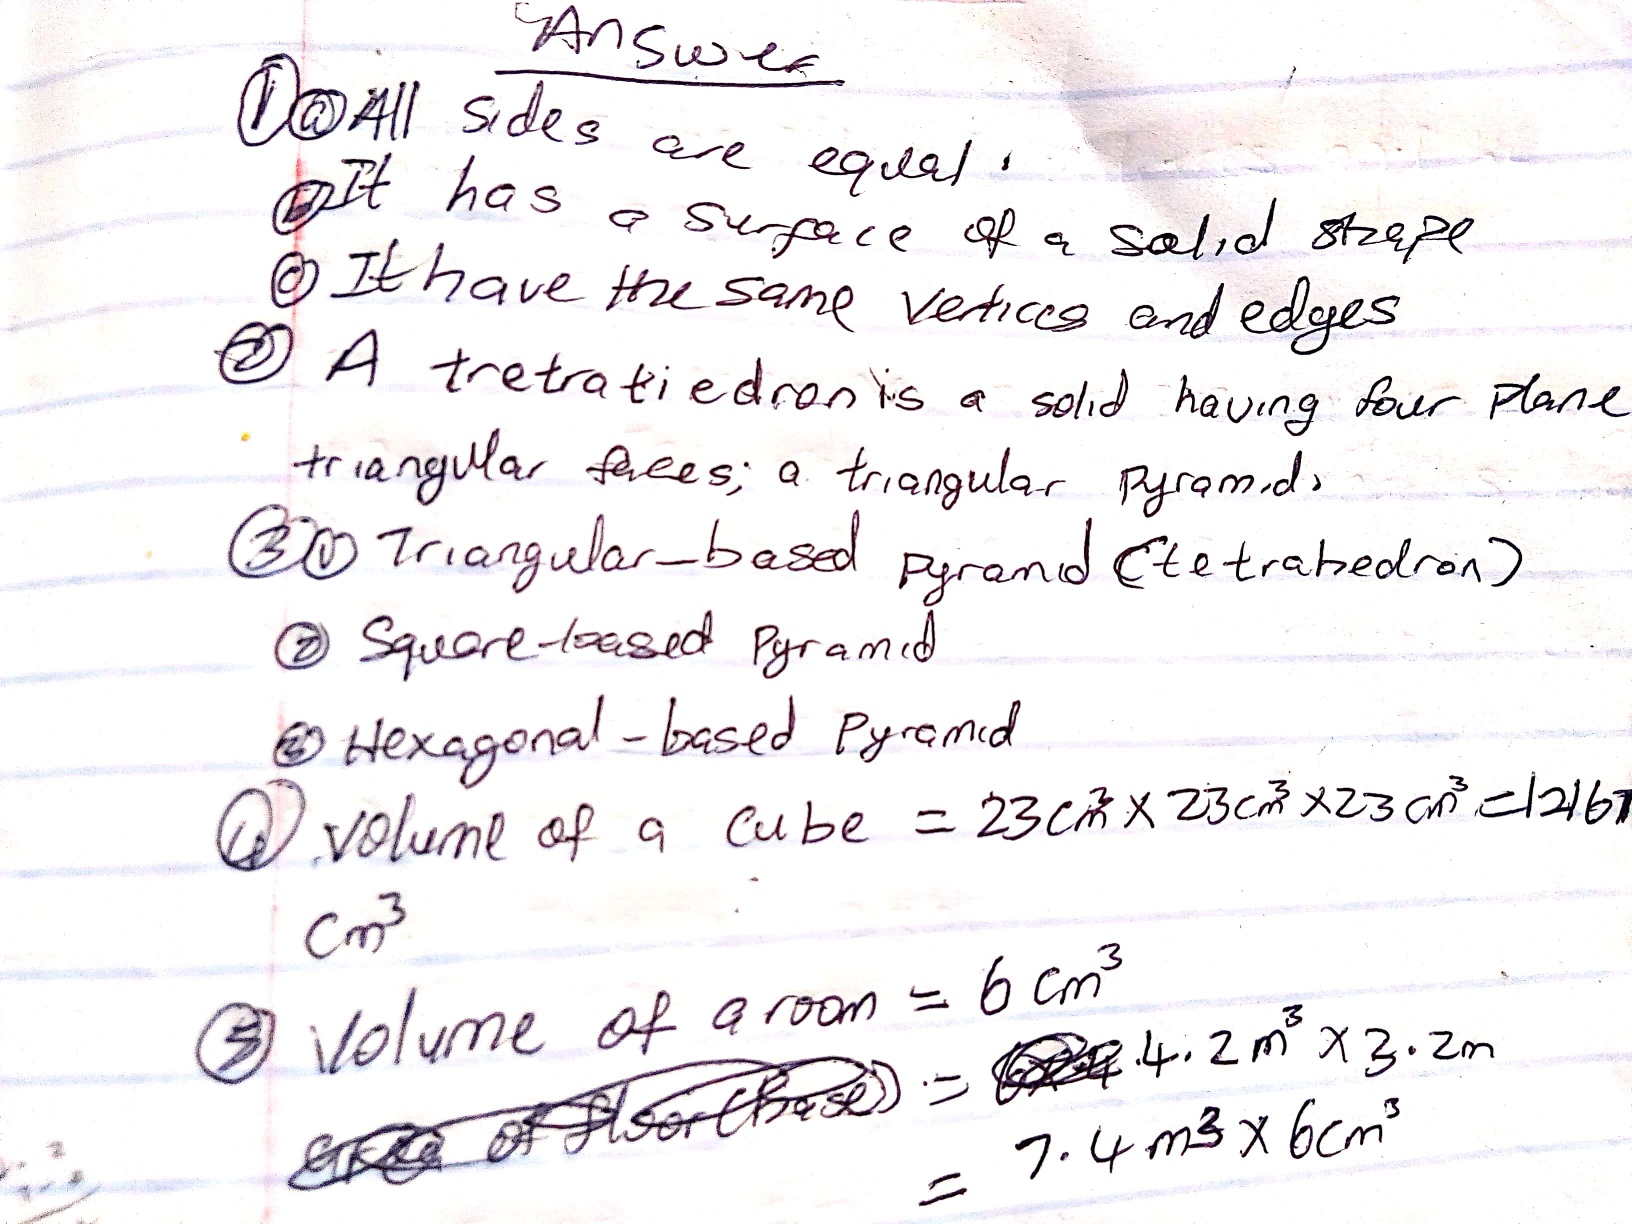 Answer
① ⓐ All sides are equal.
ⓑ It has a surface of a solid shape
ⓒ It have the same vertices and edges
② A tretratiedron is a solid having four plane
triangular faces; a triangular pyramid.
③ ① Triangular-based pyramid (tetrahedron)
② Square-based Pyramid
③ Hexagonal-based Pyramid
④ Volume of a cube = 23cm³ × 23cm³ × 23cm³ = 12167
cm³
⑤ Volume of a room = 6cm³
= 4.2m³ × 3.2m
= 7.4m³ × 6cm³